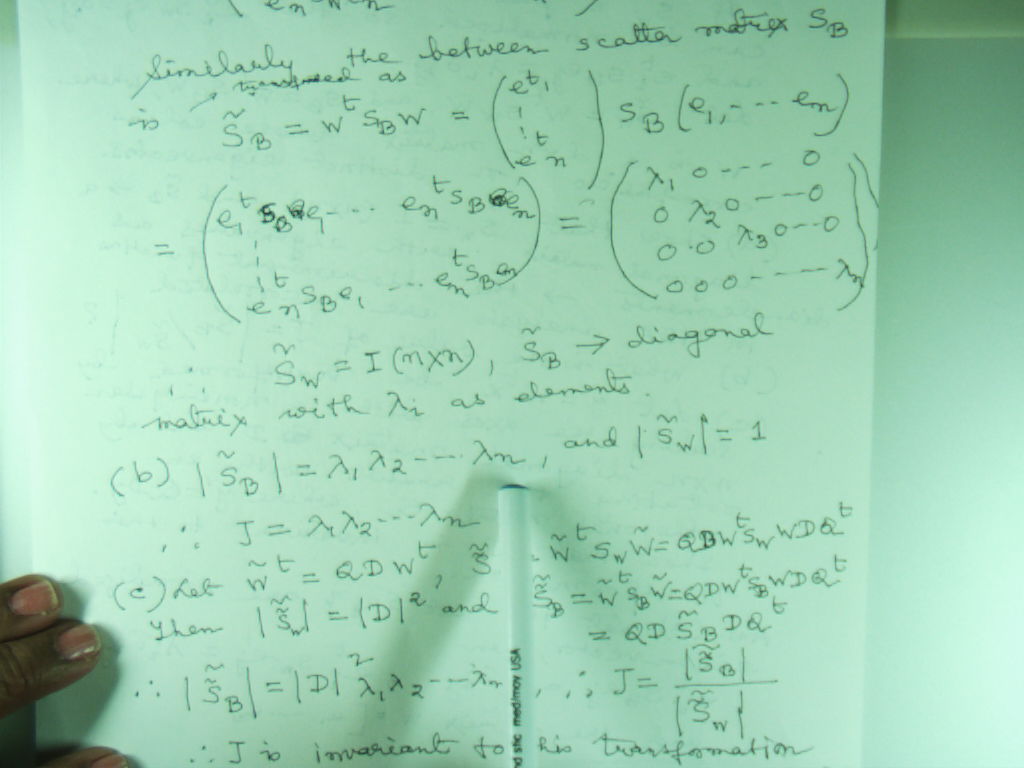 Similarly the between scatter matrix S_B
is transformed as
S̃_B = W^t S_B W = (e^t_1 ⋮ e^t_n) S_B (e_1, --- e_n)
= (e_1^t S_B e_1 ... e_n^t S_B e_n ⋮ e_n^t S_B e_1 ... e_n^t S_B e_n) = (λ_1 0 --- 0
0 λ_2 0 --- 0
0 0 λ_3 0 -- 0
0 0 0 ---- λ_n)
∴ S̃_W = I (n×n), S̃_B → diagonal
matrix with λ_i as elements.
(b) |S̃_B| = λ_1 λ_2 --- λ_n, and |S̃_W| = 1
∴ J = λ_1 λ_2 ... λ_n
(c) Let W̃^t = QDW^t, W̃^t S_W W̃ = QDW^t S_W WDQ^t
Then |S̃̃_W| = |D|^2 and S̃̃_B = W̃^t S_B W̃ = QDW^t S_B WDQ^t
= QD S̃_B DQ^t
∴ |S̃̃_B| = |D|^2 λ_1 λ_2 --- λ_n, ∴ J = |S̃̃_B| / |S̃̃_W|
∴ J is invariant to his transformation
med/moy USA